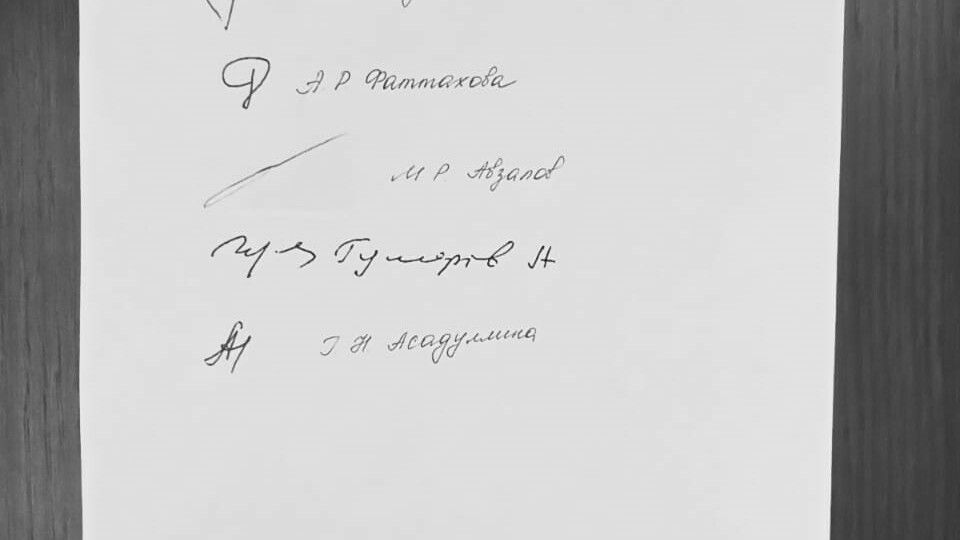 А. Р. Фаттахова
М. Р. Авзалов
Н
Г Н Асадуллина